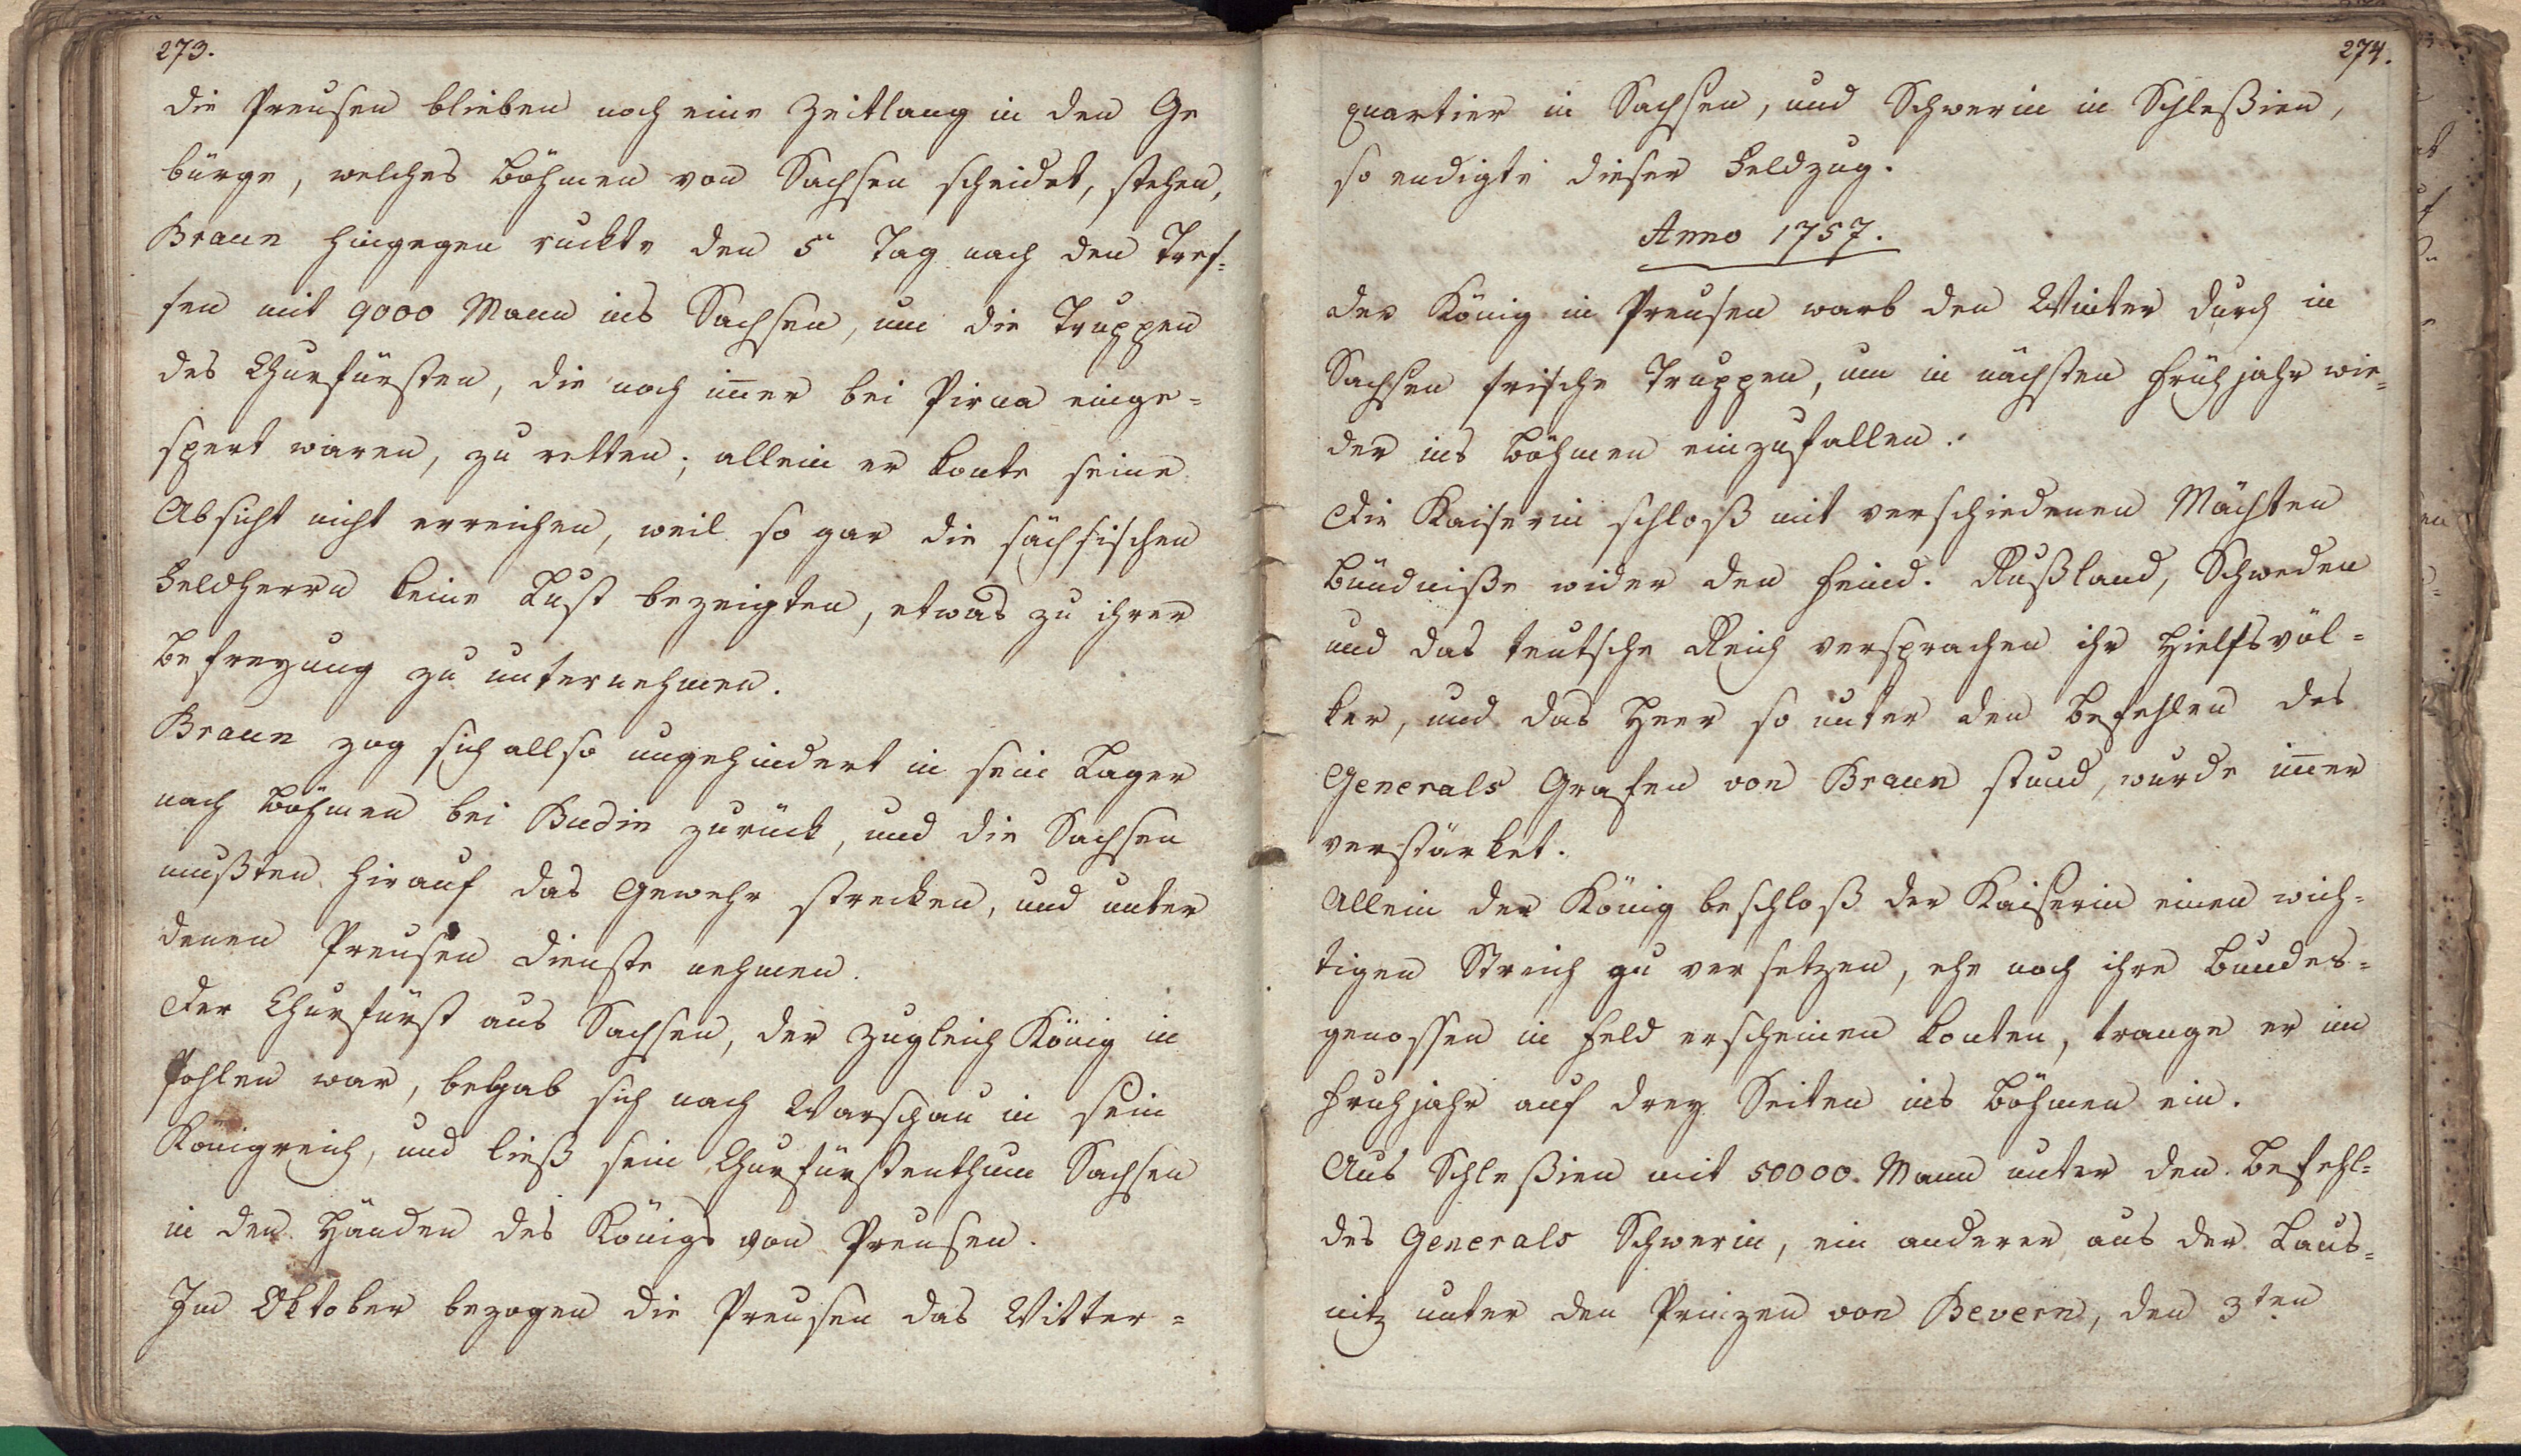 273.
die Preusen blieben noch eine Zeitlang in den Ge
bürge, welches Böhmen von Sachsen scheidet, stehen,
Braun hingegen ruckte den 5 Tag nach den Tref-
fen mit 9000 Mann ins Sachsen, um die Truppen
des Churfürsten, die noch im̅er bei Pirna einge-
spert waren, zu retten; allein er konte seine
Absicht nicht erreichen, weil so gar die sächsischen
Feldherrn keine Lust bezeigten, etwas zu ihrer
Befreyung zu unternehmen.
Braun zog sich allso ungehindert in sein Lager
nach Böhmen bei Budin zurück, und die Sachsen
mußten hirauf das Gewehr strecken, und unter
denen Preusen dienste nehmen.
Der Churfürst aus Sachsen, der zugleich König in
Pohlen war, begab sich nach Warschau in sein
Königreich, und ließ sein Churfürstenthum Sachsen
in den Händen des Königs von Preusen.
Im Oktober bezogen die Preusen das Witter-
274.
quartier in Sachsen, und Schwerin in Schleßien,
so endigte dieser Feldzug.
Anno 1757.
der König in Preusen warb den Winter durch in
Sachsen frische Truppen, um in nächsten Frühjahr wie-
der ins Böhmen einzufallen.
Die Kaiserin schloß mit verschiedenen Mächten
Bündniße wider den Feind. Rußland, Schweden
und das teutsche Reich versprachen ihr Hielfsvöl-
ker, und das Heer so unter den Befehlen des
Generals Grafen von Braun stund, wurde im̅er
verstärket.
Allein der König beschloß der Kaiserin einen wich-
tigen Streich zu versetzen, ehe noch ihre Bundes-
genossen in Feld erscheinen konten, trange er im
Fruhjahr auf drey Seiten ins Böhmen ein.
Aus Schleßien mit 50000. Mann unter den Befehl-
des Generals Schwerin, ein anderer aus der Laus-
nitz unter den Prinzen von Bevern, den 3ten